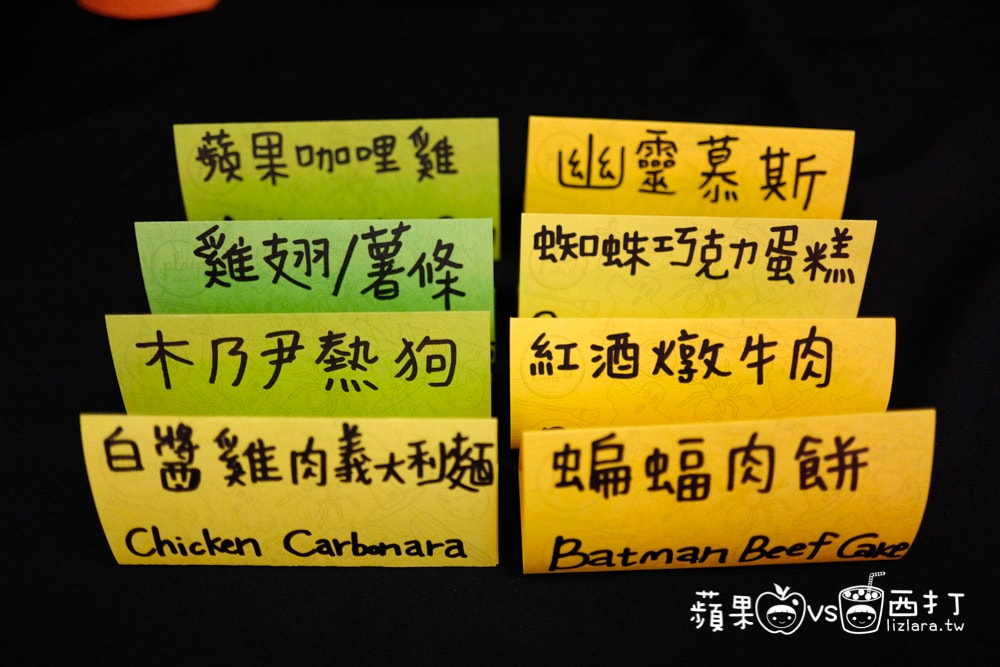 蘋果咖哩雞
雞翅/薯條
木乃尹熱狗
白醬雞肉義大利麵
Chicken Carbonara
幽靈慕斯
蜘蛛巧克力蛋糕
紅酒燉牛肉
蝙蝠肉餅
Batman Beef Cake
蘋果vs西打
lizlara.tw